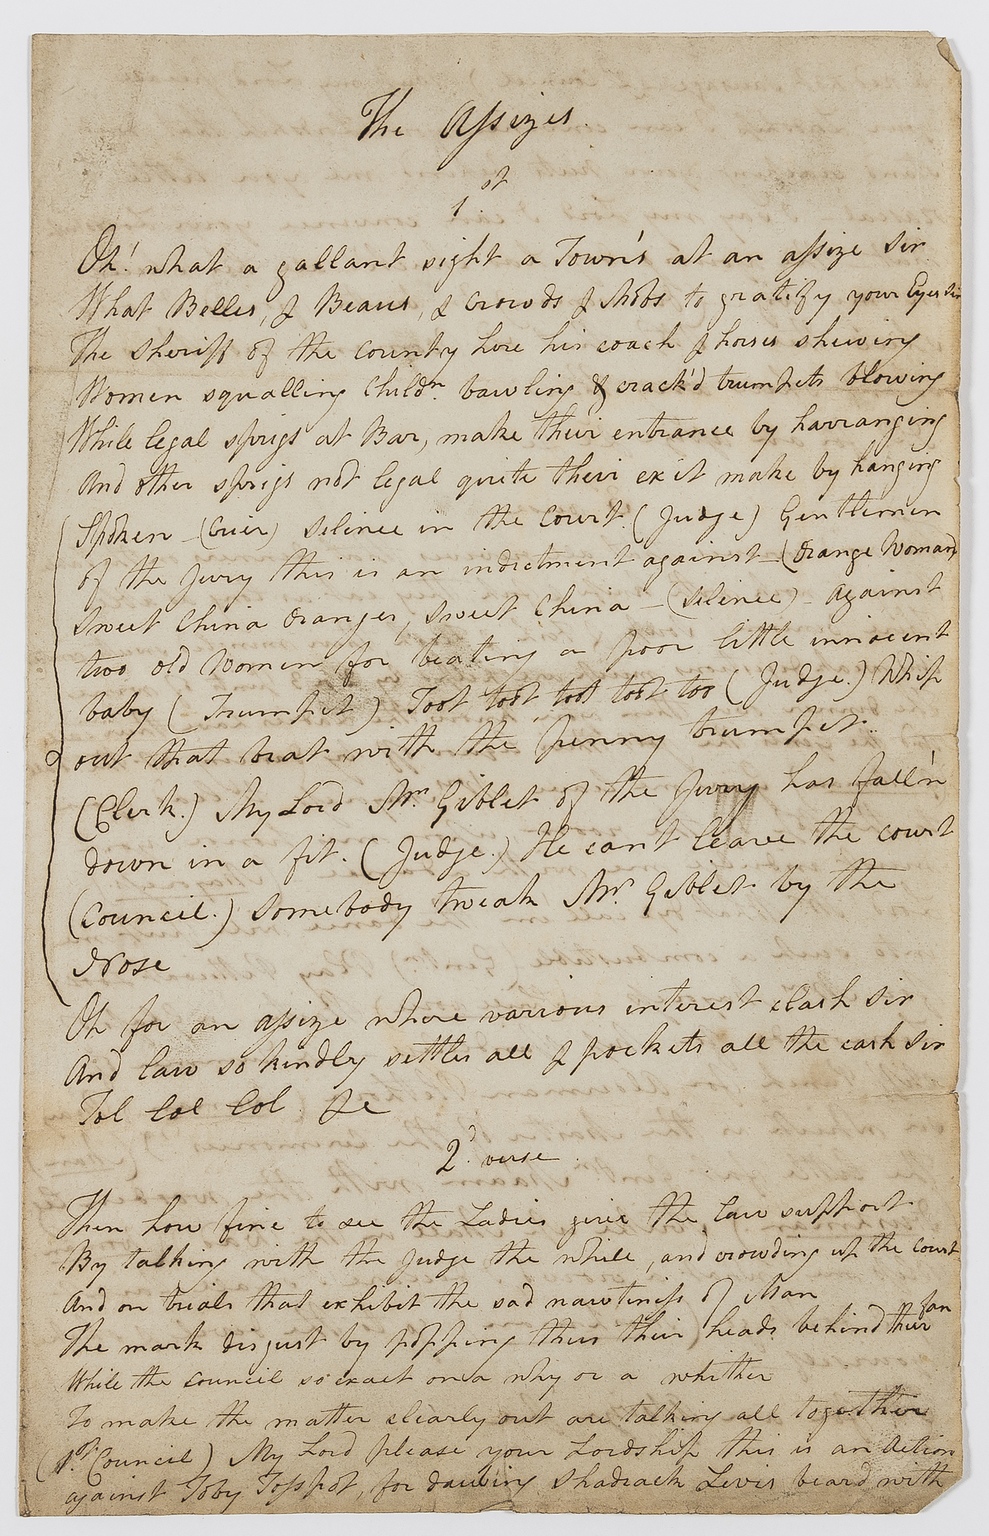 The Assizes
1st
Oh! what a gallant sight a Town's at an assize Sir
What Belles, & Beaus, & Crowds & Mobs to gratify your Eyes Sir
The Sheriff of the County here his coach & horses shewing
Women squalling Childn. bawling & crack'd trumpets blowing
While legal sprigs at Bar, make their entrance by harranging
And other sprigs not legal quite their exit make by hanging
Spoken - (Crier) Silence in the Court. (Judge) Gentlemen
of the Jury this is an indictment against - (Orange Woman)
Sweet China Oranges, sweet China - (Silence) - Against
two old Women for beating a poor little innocent
baby (Trumpet) Toot toot toot toot too (Judge.) Whip
out that brat with the penny trumpet.
(Clerk.) My Lord Mr. Giblet of the Jury has fall'n
down in a fit. (Judge.) He can't leave the court
(Council.) Somebody tweak Mr. Giblet by the
Nose
Oh for an assize where various interest clash Sir
And Law so kindly settles all & pockets all the cash Sir
Tol lol lol &c
2d. verse
Then how fine to see the Ladies give the Law support
By talking with the Judge the while, and crowding up the Court
And on trials that exhibit the sad nawtiness of Man
The mark disgust by popping thus their heads behind their fan
While the Council so exact on a why or a whither
To make the matter clearly out are talking all together
(1st. Council) My Lord please your Lordship this is an Action
against Toby Tosspot, for dawbing Shadrack Levis beard with